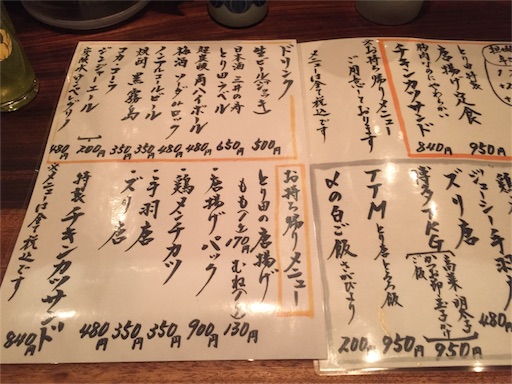 ドリンク
生ビール(ジョッキ) 500円
とり田ラドル 650円
日本酒 三井の寿
超炭酸 角ハイボール 480円
梅酒 ソーダorロック 480円
ノンアルコールビール 350円
焼酎 黒霧島 350円
コカ・コーラ 200円
ジンジャーエール
480円
とり田特製
唐揚げ定食 950円
胸肉なのにやわらかい
チキンカツサンド 840円
※お持ち帰りメニュー
ご用意しております
メニューは全て税込です
お持ち帰りメニュー
とり田の唐揚げ
もも(一ヶ)170円 むね(一ヶ)130円
・唐揚げパック 900円
・鶏メンチカツ 350円
・手羽唐 350円
・ズリ唐 480円
特製 チキンカツサンド 840円
※メニューは全て税込です
ジューシー手羽
480円
ズリ唐
博多TKG 950円
高菜・明太子
かつお節・玉子付
ご飯
TTM 950円
とり唐とろろ飯
〆の白ご飯 200円
さがびより